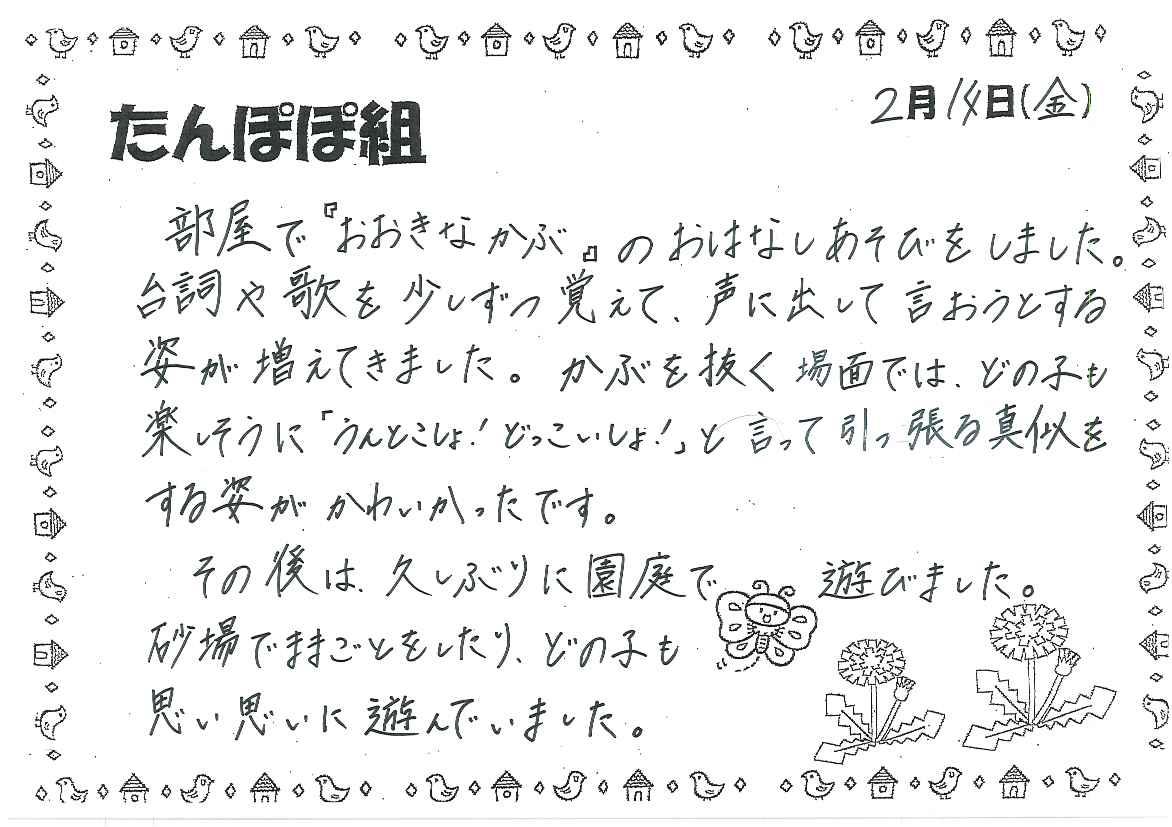 たんぽぽ組
2月14日(金)
部屋で『おおきなかぶ』のおはなしあそびをしました。
台詞や歌を少しずつ覚えて、声に出して言おうとする
姿が増えてきました。かぶを抜く場面では、どの子も
楽しそうに「うんとこしょ!どっこいしょ!」と言って引っ張る真似を
する姿がかわいかったです。
その後は、久しぶりに園庭で遊びました。
砂場でままごとをしたり、どの子も
思い思いに遊んでいました。